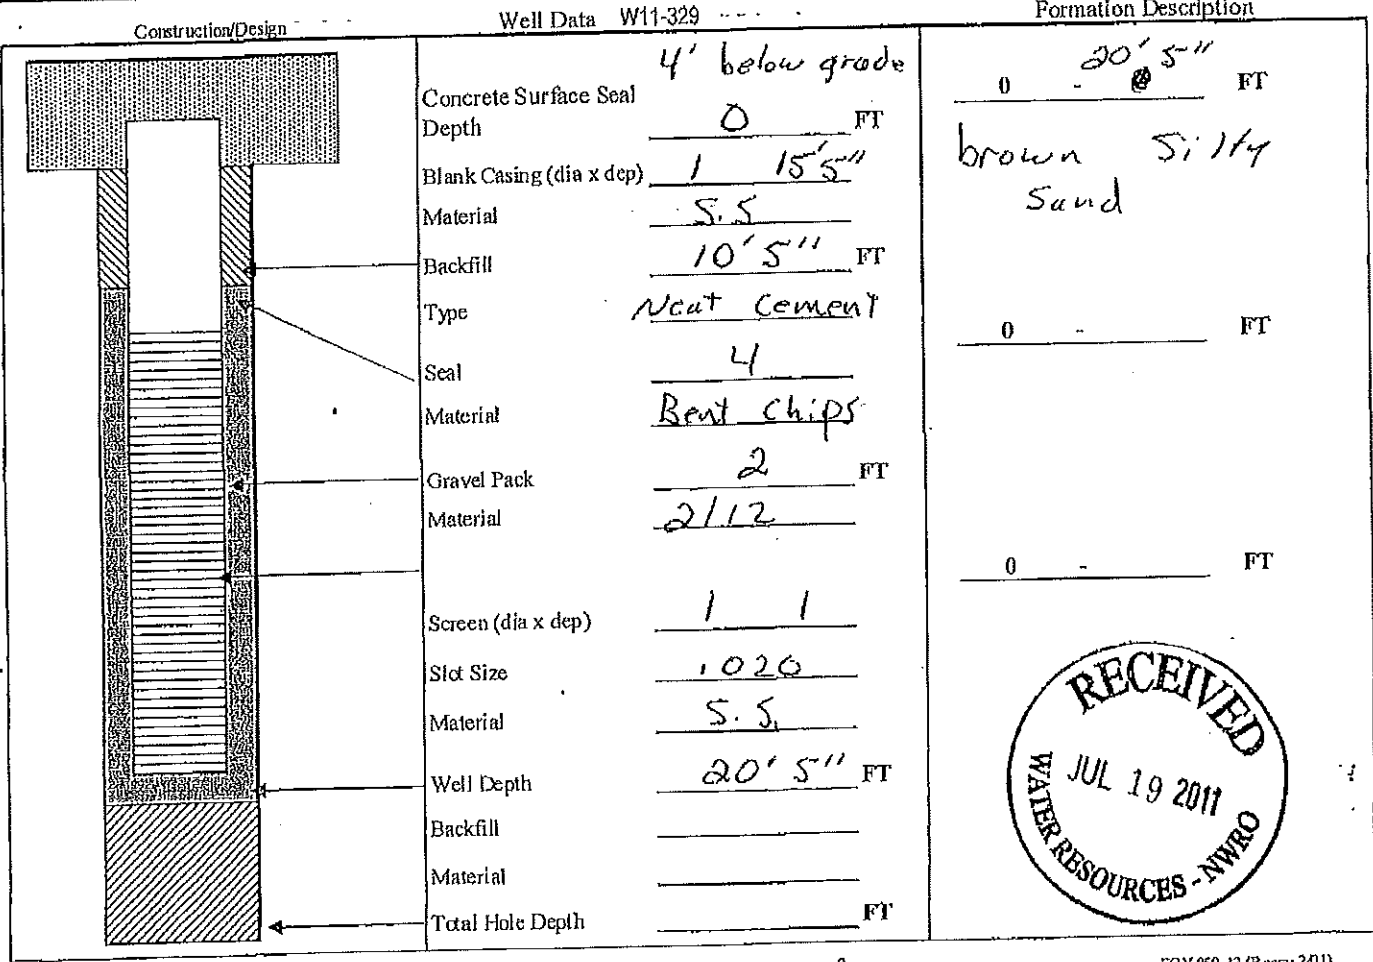 Construction/Design
Well Data W11-329
Formation Description
4' below grade
Concrete Surface Seal
Depth 0 FT
Blank Casing (dia x dep) 1 15'5"
Material S.S
Backfill 10'5" FT
Type Neat Cement
Seal 4
Material Bent Chips
Gravel Pack 2 FT
Material 2/12
Screen (dia x dep) 1 1
Slot Size .020
Material S.S.
Well Depth 20' 5" FT
Backfill
Material
Total Hole Depth FT
20' 5"
0 - FT
brown Silty
Sand
0 - FT
0 - FT
RECEIVED
JUL 19 2011
WATER RESOURCES - NWRO